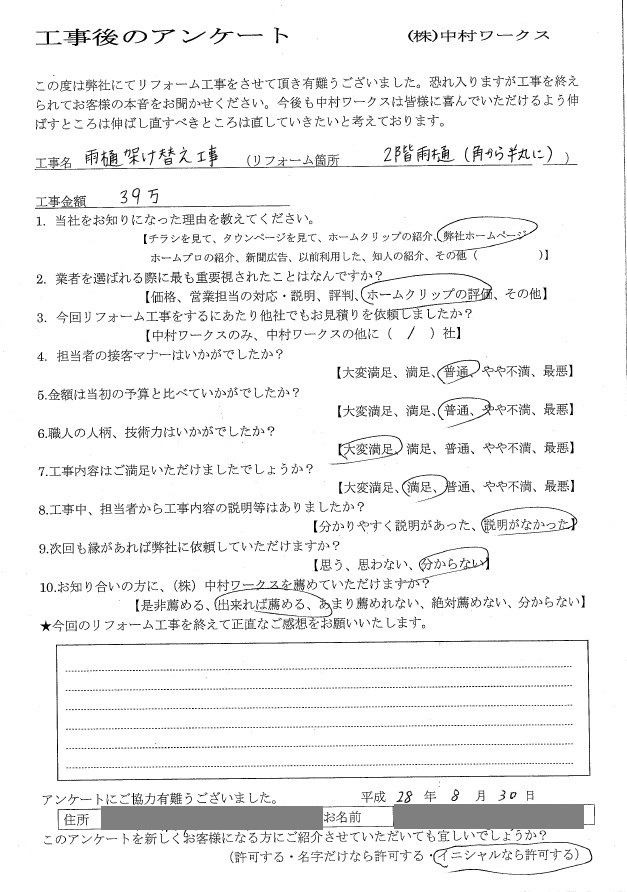 工事後のアンケート (株)中村ワークス
この度は弊社にてリフォーム工事をさせて頂き有難うございました。恐れ入りますが工事を終え
られてお客様の本音をお聞かせください。今後も中村ワークスは皆様に喜んでいただけるよう伸
ばすところは伸ばし直すべきところは直していきたいと考えております。
工事名 雨樋架け替え工事 (リフォーム箇所 2階雨樋(角から半丸に) )
工事金額 39万
1. 当社をお知りになった理由を教えてください。
【チラシを見て、タウンページを見て、ホームクリップの紹介、弊社ホームページ
ホームプロの紹介、新聞広告、以前利用した、知人の紹介、その他( )】
2. 業者を選ばれる際に最も重要視されたことはなんですか?
【価格、営業担当の対応・説明、評判、ホームクリップの評価、その他】
3. 今回リフォーム工事をするにあたり他社でもお見積りを依頼しましたか?
【中村ワークスのみ、中村ワークスの他に( / )社】
4. 担当者の接客マナーはいかがでしたか?
【大変満足、満足、普通、やや不満、最悪】
5.金額は当初の予算と比べていかがでしたか?
【大変満足、満足、普通、やや不満、最悪】
6.職人の人柄、技術力はいかがでしたか?
【大変満足、満足、普通、やや不満、最悪】
7.工事内容はご満足いただけましたでしょうか?
【大変満足、満足、普通、やや不満、最悪】
8.工事中、担当者から工事内容の説明等はありましたか?
【分かりやすく説明があった、説明がなかった】
9.次回も縁があれば弊社に依頼していただけますか?
【思う、思わない、分からない】
10.お知り合いの方に、(株)中村ワークスを薦めていただけますか?
【是非薦める、出来れば薦める、あまり薦めれない、絶対薦めない、分からない】
★今回のリフォーム工事を終えて正直なご感想をお願いいたします。
アンケートにご協力有難うございました。 平成 28 年 8 月 30 日
住所 お名前
このアンケートを新しくお客様になる方にご紹介させていただいても宜しいでしょうか?
(許可する・名字だけなら許可する・イニシャルなら許可する)